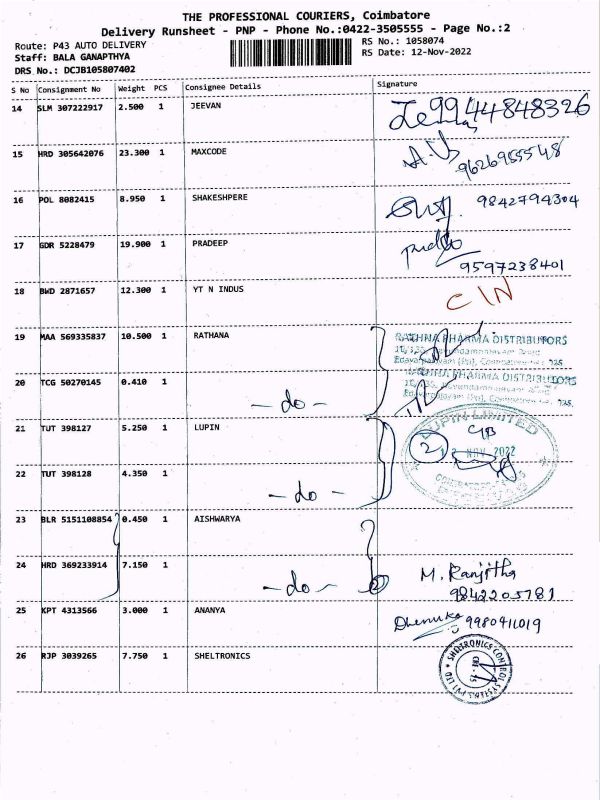 THE PROFESSIONAL COURIERS, Coimbatore
Delivery Runsheet - PNP - Phone No.:0422-3505555 - Page No.:2
Route: P43 AUTO DELIVERY RS No.: 1058074
Staff: BALA GANAPTHYA RS Date: 12-Nov-2022
DRS No.: DCJB105807402
S No Consignment No Weight PCS Consignee Details Signature
14 SLM 307222917 2.500 1 JEEVAN 9944848326
15 HRD 305642076 23.300 1 MAXCODE 9626955548
16 POL 8082415 8.950 1 SHAKESHPERE 9842794304
17 GDR 5228479 19.900 1 PRADEEP
9597238401
18 BWD 2871657 12.300 1 YT N INDUS C/N
19 MAA 569335837 10.500 1 RATHANA RATHNA PHARMA DISTRIBUTORS
20 TCG 50270145 0.410 1 RATHNA PHARMA DISTRIBUTORS
- do -
21 TUT 398127 5.250 1 LUPIN LUPIN LIMITED
2 NOV 2022
22 TUT 398128 4.350 1
- do -
23 BLR 5151108854 0.450 1 AISHWARYA
24 HRD 369233914 7.150 1 M. Ranjitha
- do - 2 9842205781
25 KPT 4313566 3.000 1 ANANYA Dhenuka 9980411019
26 RJP 3039265 7.750 1 SHELTRONICS SHELTRONICS CONTROL SYSTEMS PVT LTD
CBE-15